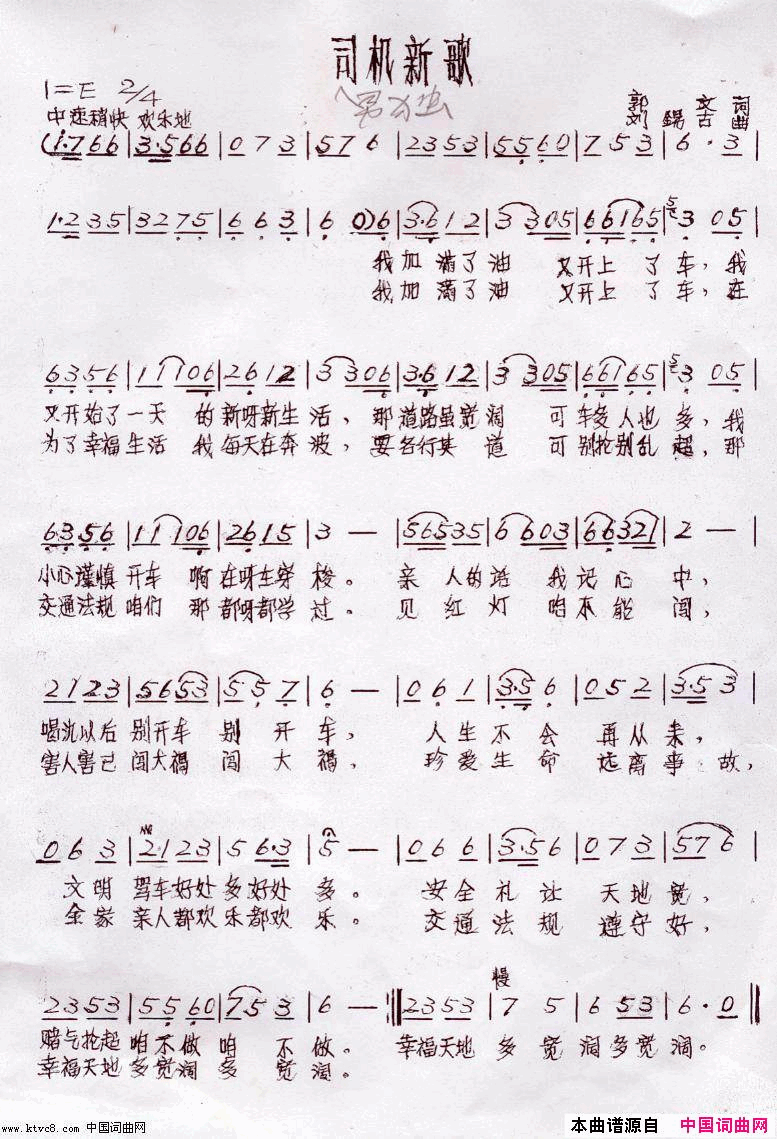 司机新歌
1=E 2/4
中速稍快 欢乐地
郭 文 词
刘 锡 古 曲
(1·766 | 3·566 | 073 | 576 | 2353 | 5560 | 753 | 6·3 |
1·235 | 3275 | 663 | 6 0)6 | 3·612 | 3 305 | 66165 | 3 05 |
我加 满了油 又开上 了车,我
我加 满了油 又开上 了车,在
63·56 | 11106 | 2612 | 3 306 | 3·612 | 3 305 | 66165 | 3 05 |
又开始了一天 的新呀新生活,那道路虽宽阔 可车多人也多,我
为了幸福生活 我每天在奔波,要各行其 道 可别抢别乱超,那
63·56 | 11106 | 2615 | 3 — | 56535 | 6 603 | 66321 | 2 — |
小心谨慎 开车 啊在呀车穿梭。 亲 人的话 我记心 中,
交通法规 咱们 那都呀都学 过。 见 红灯 咱不能 闯,
2123 | 5653 | 5 5 7 | 6 — | 061 | 3·56 | 052 | 3·53 |
喝酒以后 别开车 别 开车, 人生不会 再从来,
害人害己 闯大祸 闯 大祸, 珍爱生命 远离事故,
063 | 2·123 | 5 6·3 | 5 — | 066 | 3·56 | 073 | 576 |
文明 驾车好处多好处 多。 安全礼让 天地宽,
全家 亲人都欢乐都欢 乐。 交通法规 遵守好,
慢
2353 | 5560 | 753 | 6 — :‖ 2353 | 7 5 | 6 53 | 6·0 ‖
赌气抢超 咱不做 咱 不做。 幸福天地 多宽阔多宽阔。
幸福天地 多宽阔 多 宽阔。
www.ktvc8.com 中国词曲网
本曲谱源自 中国词曲网